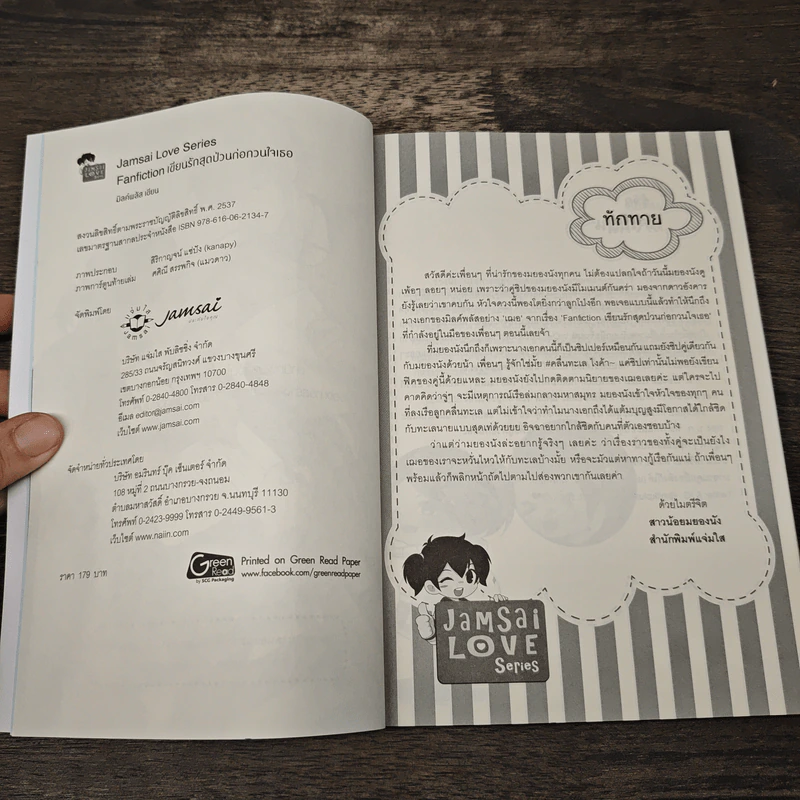 Jamsai Love Series
Fanfiction เขียนรักสุดป่วนก่อกวนใจเธอ
มิลค์พลัส เขียน
สงวนลิขสิทธิ์ตามพระราชบัญญัติลิขสิทธิ์ พ.ศ. 2537
เลขมาตรฐานสากลประจำหนังสือ ISBN 978-616-06-2134-7
ภาพประกอบ สิริกาญจน์ แซ่บัง (kanapy)
ภาพการ์ตูนท้ายเล่ม คติณี สรรพกิจ (แมวดาว)
จัดพิมพ์โดย
Jamsai
บริษัท แจ่มใส พับลิชชิ่ง จำกัด
285/33 ถนนจรัญสนิทวงศ์ แขวงบางขุนศรี
เขตบางกอกน้อย กรุงเทพฯ 10700
โทรศัพท์ 0-2840-4800 โทรสาร 0-2840-4848
อีเมล editor@jamsai.com
เว็บไซต์ www.jamsai.com
จัดจำหน่ายทั่วประเทศโดย
บริษัท อมรินทร์ บุ๊ค เซ็นเตอร์ จำกัด
108 หมู่ที่ 2 ถนนบางกรวย-จงถนอม
ตำบลมหาสวัสดิ์ อำเภอบางกรวย จ.นนทบุรี 11130
โทรศัพท์ 0-2423-9999 โทรสาร 0-2449-9561-3
เว็บไซต์ www.naiin.com
ราคา 179 บาท
Green Read
by SCG Packaging
Printed on Green Read Paper
www.facebook.com/greenreadpaper
ทักทาย
สวัสดีค่ะเพื่อนๆ ที่น่ารักของมยองนังทุกคน ไม่ต้องแปลกใจถ้าวันนี้มยองนังดู
เพ้อๆ ลอยๆ หน่อย เพราะว่าคู่ชิปของมยองนังมีโมเมนต์กันคร่า มองจากดาวอังคาร
ยังรู้เลยว่าเขาคบกัน หัวใจดวงนี้พองโตยิ่งกว่าลูกโป่งอีก พอเจอแบบนี้แล้วทำให้นึกถึง
นางเอกของมิลค์พลัสอย่าง 'เฌอ' จากเรื่อง 'Fanfiction เขียนรักสุดป่วนก่อกวนใจเธอ'
ที่กำลังอยู่ในมือของเพื่อนๆ ตอนนี้เลยจ้า
ที่มยองนังนึกถึงก็เพราะนางเอกคนนี้ก็เป็นชิปเปอร์เหมือนกัน แถมยังชิปคู่เดียวกัน
กับมยองนังด้วยน้า เพื่อนๆ รู้จักใช่มั้ย #คลื่นทะเล ไงค้า~ แค่ชิปเท่านั้นไม่พอยังเขียน
ฟิคของคู่นี้ด้วยแหละ มยองนังยังไปกดติดตามนิยายของเฌอเลยค่ะ แต่ใครจะไป
คาดคิดว่าจู่ๆ จะมีเหตุการณ์เรือล่มกลางมหาสมุทร มยองนังเข้าใจหัวใจของทุกๆ คน
ที่ลงเรือลูกคลื่นทะเล แต่ไม่เข้าใจว่าทำไมนางเอกถึงได้แต้มบุญสูงมีโอกาสได้ใกล้ชิด
กับทะเลนายแบบสุดเท่ด้วยยย อิจฉาอยากใกล้ชิดกับคนที่ตัวเองชอบบ้าง
ว่าแต่ว่ามยองนังล่ะอยากรู้จริงๆ เลยค่ะ ว่าเรื่องราวของทั้งคู่จะเป็นยังไง
เฌอของเราจะหวั่นไหวให้กับทะเลบ้างมั้ย หรือจะมัวแต่หาทางกู้เรือกันแน่ ถ้าเพื่อนๆ
พร้อมแล้วก็พลิกหน้าถัดไปตามไปส่องพวกเขากันเลยค่า
ด้วยไมตรีจิต
สาวน้อยมยองนัง
สำนักพิมพ์แจ่มใส
JAMSAI
LOVE
Series